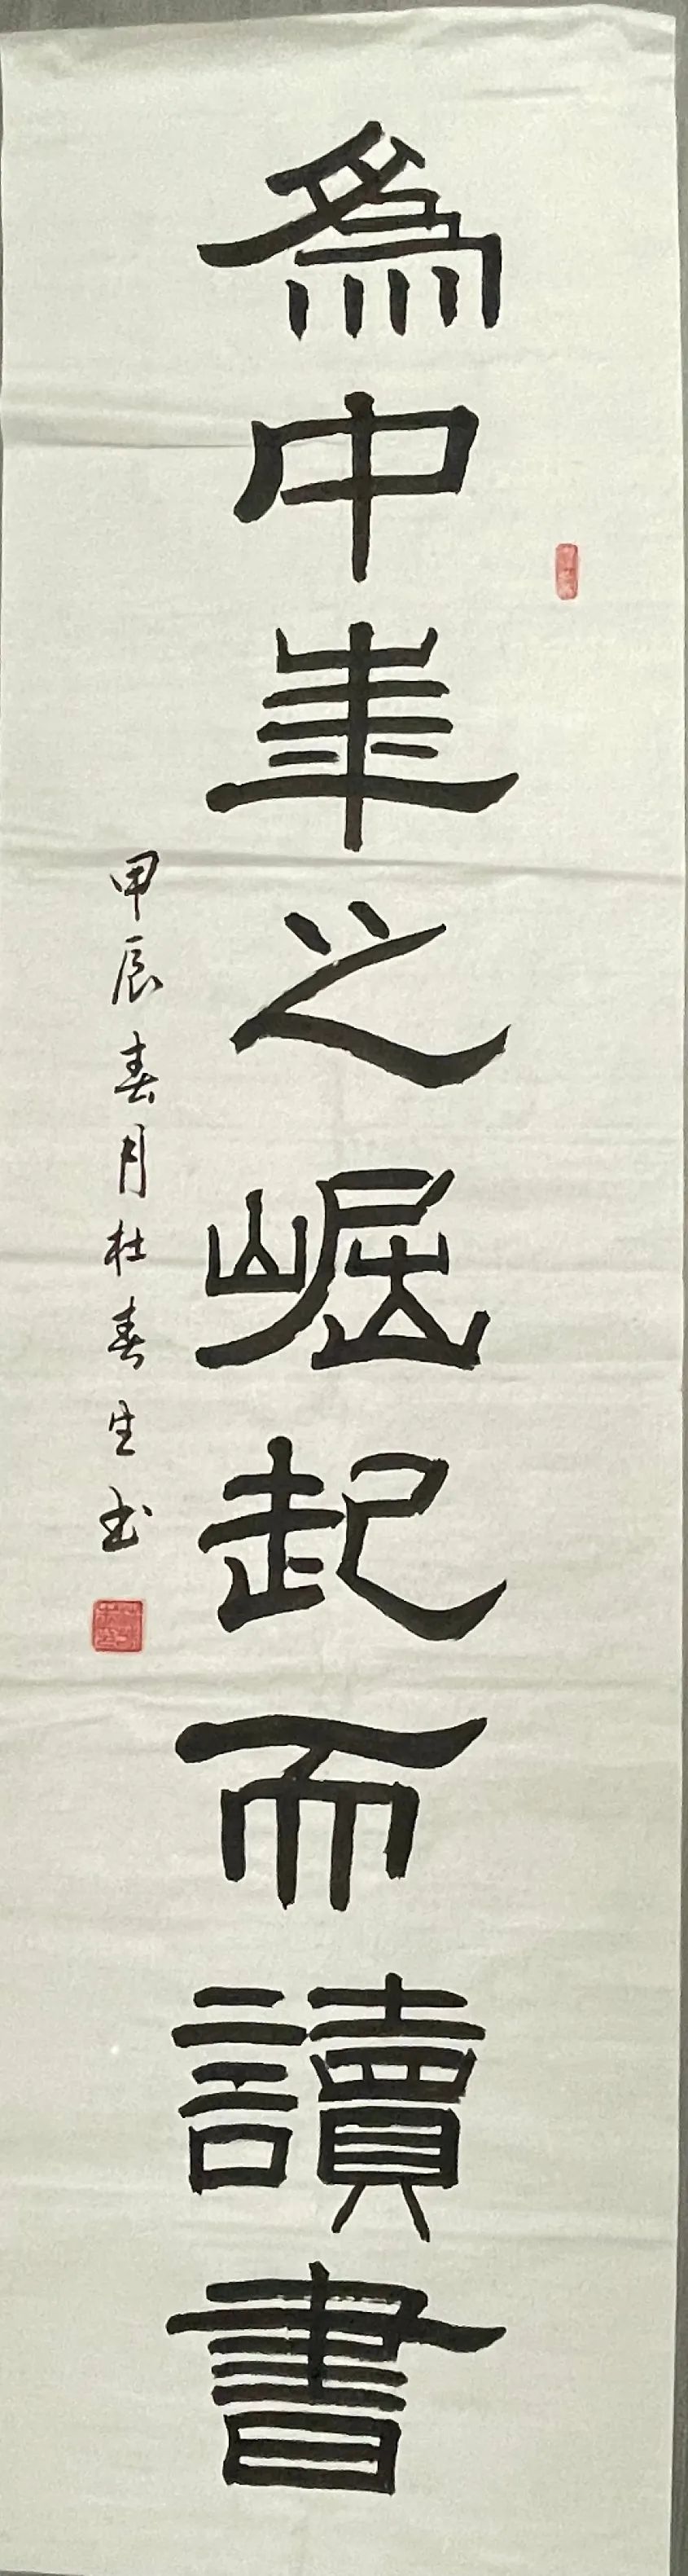 爲中華之崛起而讀書
甲辰春月杜春生书